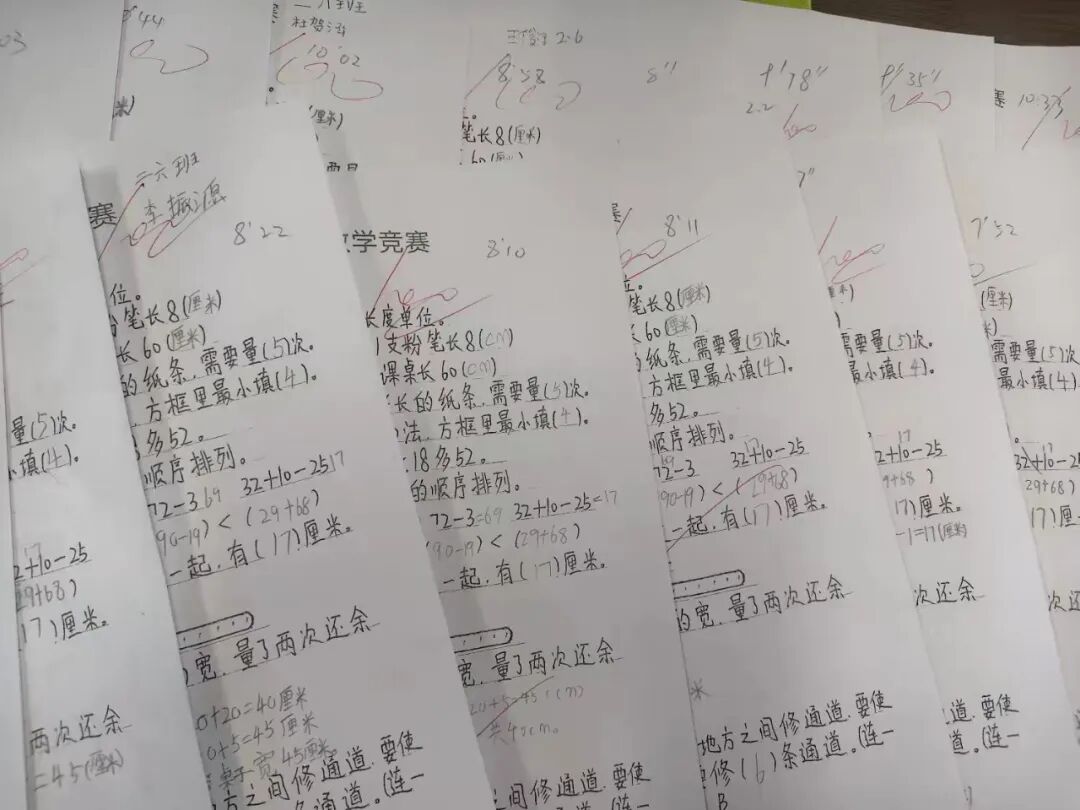 03
44
二八班
10'02
2.6
8'58
8''
9'78''
2.2
9'35''
10:33
米)
(厘米)
笔长8(厘米)
二六班
李振源
赛
8'22
位。
笔长8(厘米)
长60(厘米)
的纸条,需要量(5)次。
方框里最小填(4)。
多52。
顺序排列。
72-3 69 32+10-25 17
(90-19) < (29+68)
一起,有(17)厘米。
宽,量了两次还余
0+20=40厘米
0+5=45厘米
桌子宽45厘米
方之间修通道,要使
条通道。(连一
量(5)次。
填(4)。
2+10-25
17
29+68)
17)厘米。
两次还余
=45(厘米)
数学竞赛
8'10
长度单位。
1支粉笔长8(cm)
课桌长60(cm)
长的纸条,需要量(5)次。
法,方框里最小填(4)。
18多52。
的顺序排列。
72-3=69 32+10-25=17
(90-19) < (29+68)
一起,有(17)厘米。
宽,量了两次还余
间修通道,要使
8'11
位。
笔长8(厘米)
长60(厘米)
的纸条,需要量(5)次。
方框里最小填(4)。
多52。
顺序排列。
72-3 32+10-25
17
(90-19) < (29+68)
一起,有(17)厘米。
的宽,量了两次还余
米
地方之间修通道,要使
要修(6)条通道。(连一
B
7''
需要量(5)次。
最小填(4)。
17
2+10-25
9+68)
17)厘米。
-1=17(厘米)
次还余
道,要使
道。(连一
7'52
(厘米)
米)
需要量(5)次。
最小填(4)。
32+10-25
29+68)
17)厘米
次还
要使
(连一